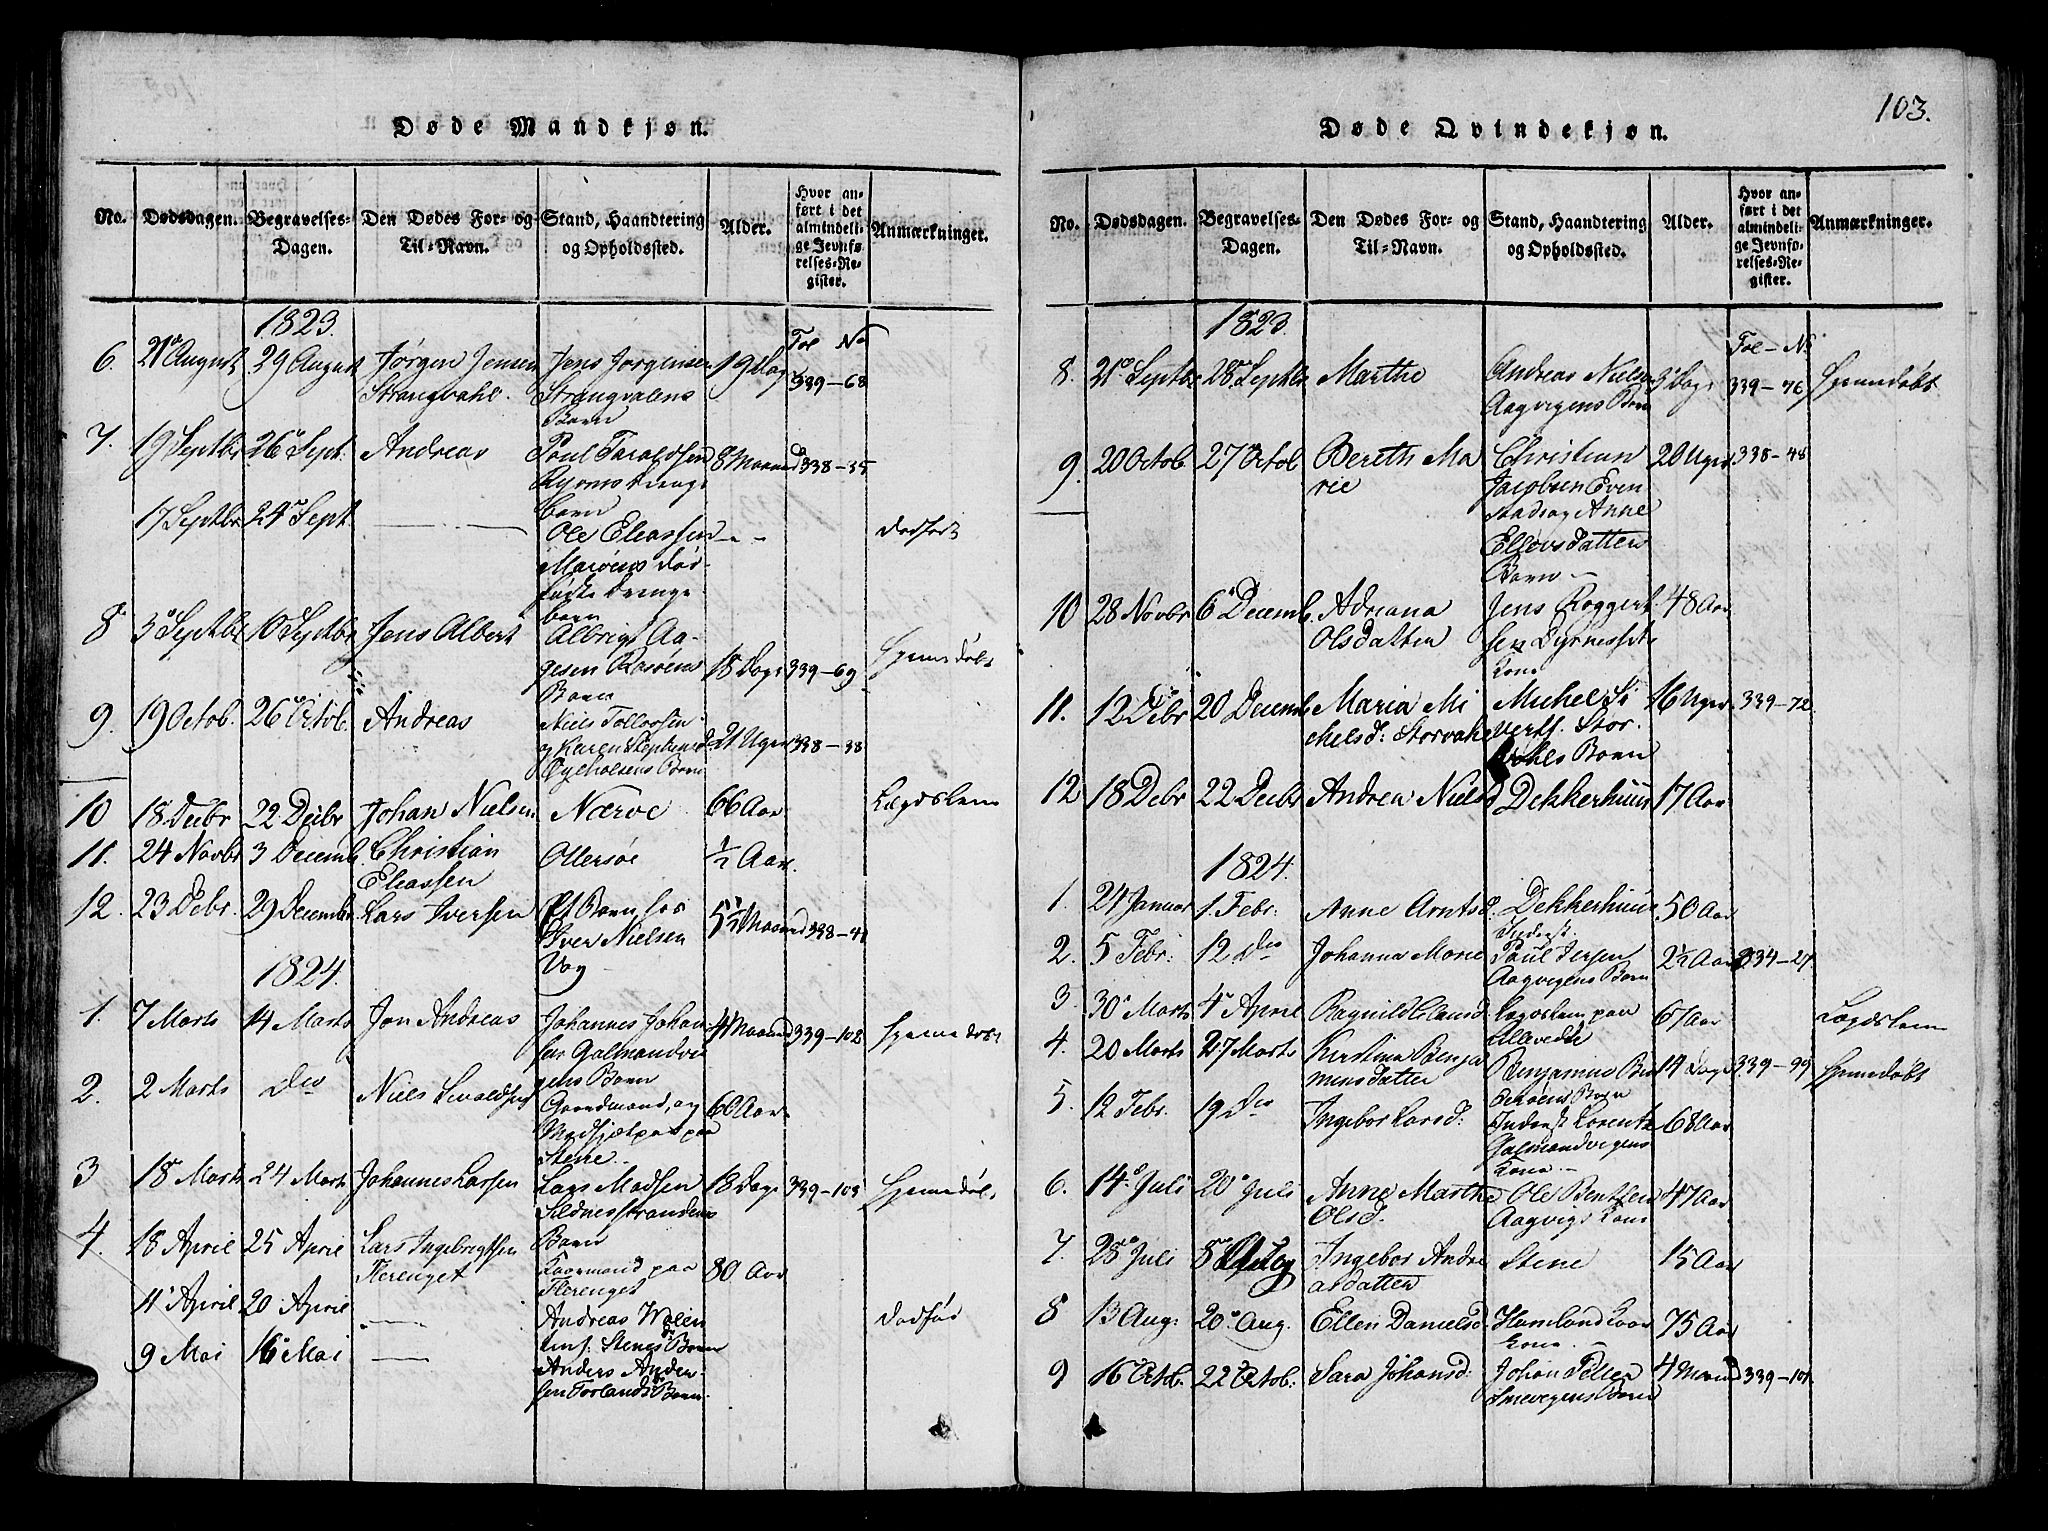 103.
Døde Mandkjøn.
No. Dødsdagen. Begravelses-Dagen. Den Dødes For- og Til-Navn. Stand, Haandtering og Opholdssted. Alder. Hvor anført i det almindelige Jevnførelses-Register. Anmærkninger.
1823.
Fol No
6. 21 August 29 August Jørgen Jensen Jens Jørgensen 19 Dag 339-68
Strangvahl. Strangvalens
Barn
7. 19 Septbr 26 Sept. Andreas Poul Taraldsen 8 Maaned 338-35
Drenge
barn
17 Septbr 24 Sept. — Ole Eleassen - - dødfødt
død-
fødte Drenge
barn
8 3 Septbr 10 Septbr Jens Albert Albrigt Aa-
gesen 18 Dage 339-69 Hjemmedøbt
Barn
9. 19 Octob. 26 Octob. Andreas Niels Tollovsen
og Karen Stephensd. 21 Uger 338-38
Barn
10 18 Decbr 22 Decbr Johan Nielsen Nærøe 66 Aar Lægdslem
11. 24 Novbr 3 Decemb. Christian Ollersøe 1/2 Aar.
Eleassen
12. 23 Debr. 29 Decembr Lars Iversen Et Barn hos 5 1/2 Maaned 338-41
Iver Nielsen
Vog
1824.
1. 7 Marts 14 Marts Jon Andreas Johannes Johan 4 Maaned 339-102 Hjemmedøbt
sens Galmandvi
gens Barn
2. 2 Marts Do Niels Sivaldsen Gaardmand, og 60 Aar
paa
Stene
3 18 Marts 24 Marts Johannes Larsen Lars Madsen 18 Dage 339-105 Hjemmedøbt
Sildnesstrandens
Barn
4. 18 April 25 April Lars Ingebrigtsen Kaarmand paa 80 Aar
Flerenget Flerenget
11 April 20 April — Andreas dødfød
Stenes Barn
9 Mai 16 Mai — Anders Ander-
sen Torlands Barn
Døde Qvindekjøn.
No. Dødsdagen. Begravelses-Dagen. Den Dødes For- og Til-Navn. Stand, Haandtering og Opholdssted. Alder. Hvor anført i det almindelige Jevnførelses-Register. Anmærkninger.
1823.
Fol - No
8. 21 Septbr 28 Septbr Marthe Andreas Nielsen Dage 339-76 Hjemmedøbt
Aagvigens Barn
9. 20 Octob. 27 Octob Bereth Ma Christian 20 Uger 338-48
rie Jacobsen Even
stad og Anne
Ellevsdatters
Barn -
10 28 Novbr 6 Decemb. Adriana Jens Roggert 48 Aar
Olsdatter sen Dyrnessets
Kone
11. 12 Debr 20 Decemb Maria Mi Michel Si 16 Uger 339-72
chelsd: Storvahl vertf. Stor.
vahls Barn
12 18 Debr 22 Decbr Andrea Nielsd Dekkerhuus 17 Aar
1824.
1. 24 Januar 1 Febr: Anne Arntsd. Dekkerhuus 50 Aar
Inderst
2. 5 Febr: 12 Do Johanna Marie Poul 2 1/2 Aar 334-27
Aagvigens Barn
3. 30 Marts 4 April Ragnild Lægdslem paa 67 Aar Lægdslem
Ullavedte
4. 20 Marts 27 Marts Kirstina Benja Benjamins 14 Dage 339-99 Hjemmedøbt
minsdatter Barn
5. 12 Febr. 19 Do Ingebor Larsd: Inderst Lorentz 68 Aar
Galmandvigens
Kone -
6. 14 Juli 20 Juli Anne Marthe Ole Bentsen 47 Aar
Olsd. Aagvigs Kone
7. 28 Juli 5 Ingebor Andre Stene 15 Aar
asdatter
8 13 Aug: 20 Aug. Ellen Danielsd. Hamland Kaar 75 Aar
kone -
9 16 Octob. 22 Octob: Sara Johansd: Johan Peter 4 Maaned 339-101
Smevegens Barn